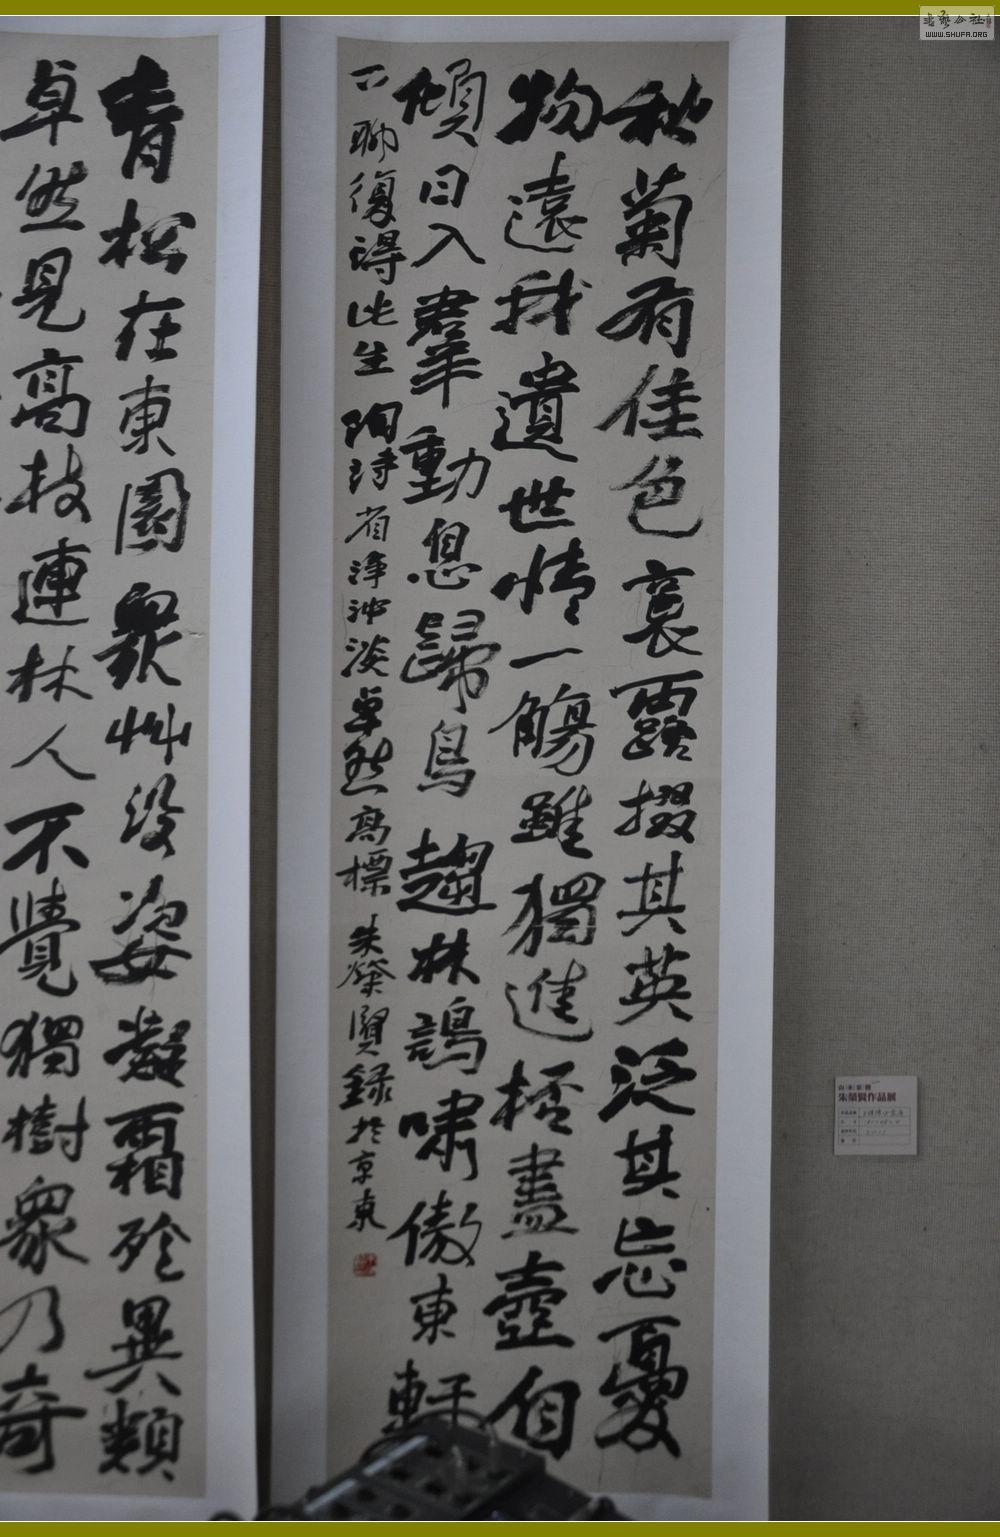 秋菊有佳色裛露掇其英泛其忘憂
物遠我遺世情一觴雖獨進桮盡壺自
傾日入羣動息歸鳥趨林鳴嘯傲東軒
下聊復得此生 陶詩省淨沖淡卓然高標 朱榮賢錄於京東
青松在東園眾艸沒姿凝霜殄異類
卓然見高枝連林人不覺獨樹眾乃奇
朱榮賢作品展
書藝公社
WWW.SHUFA.ORG